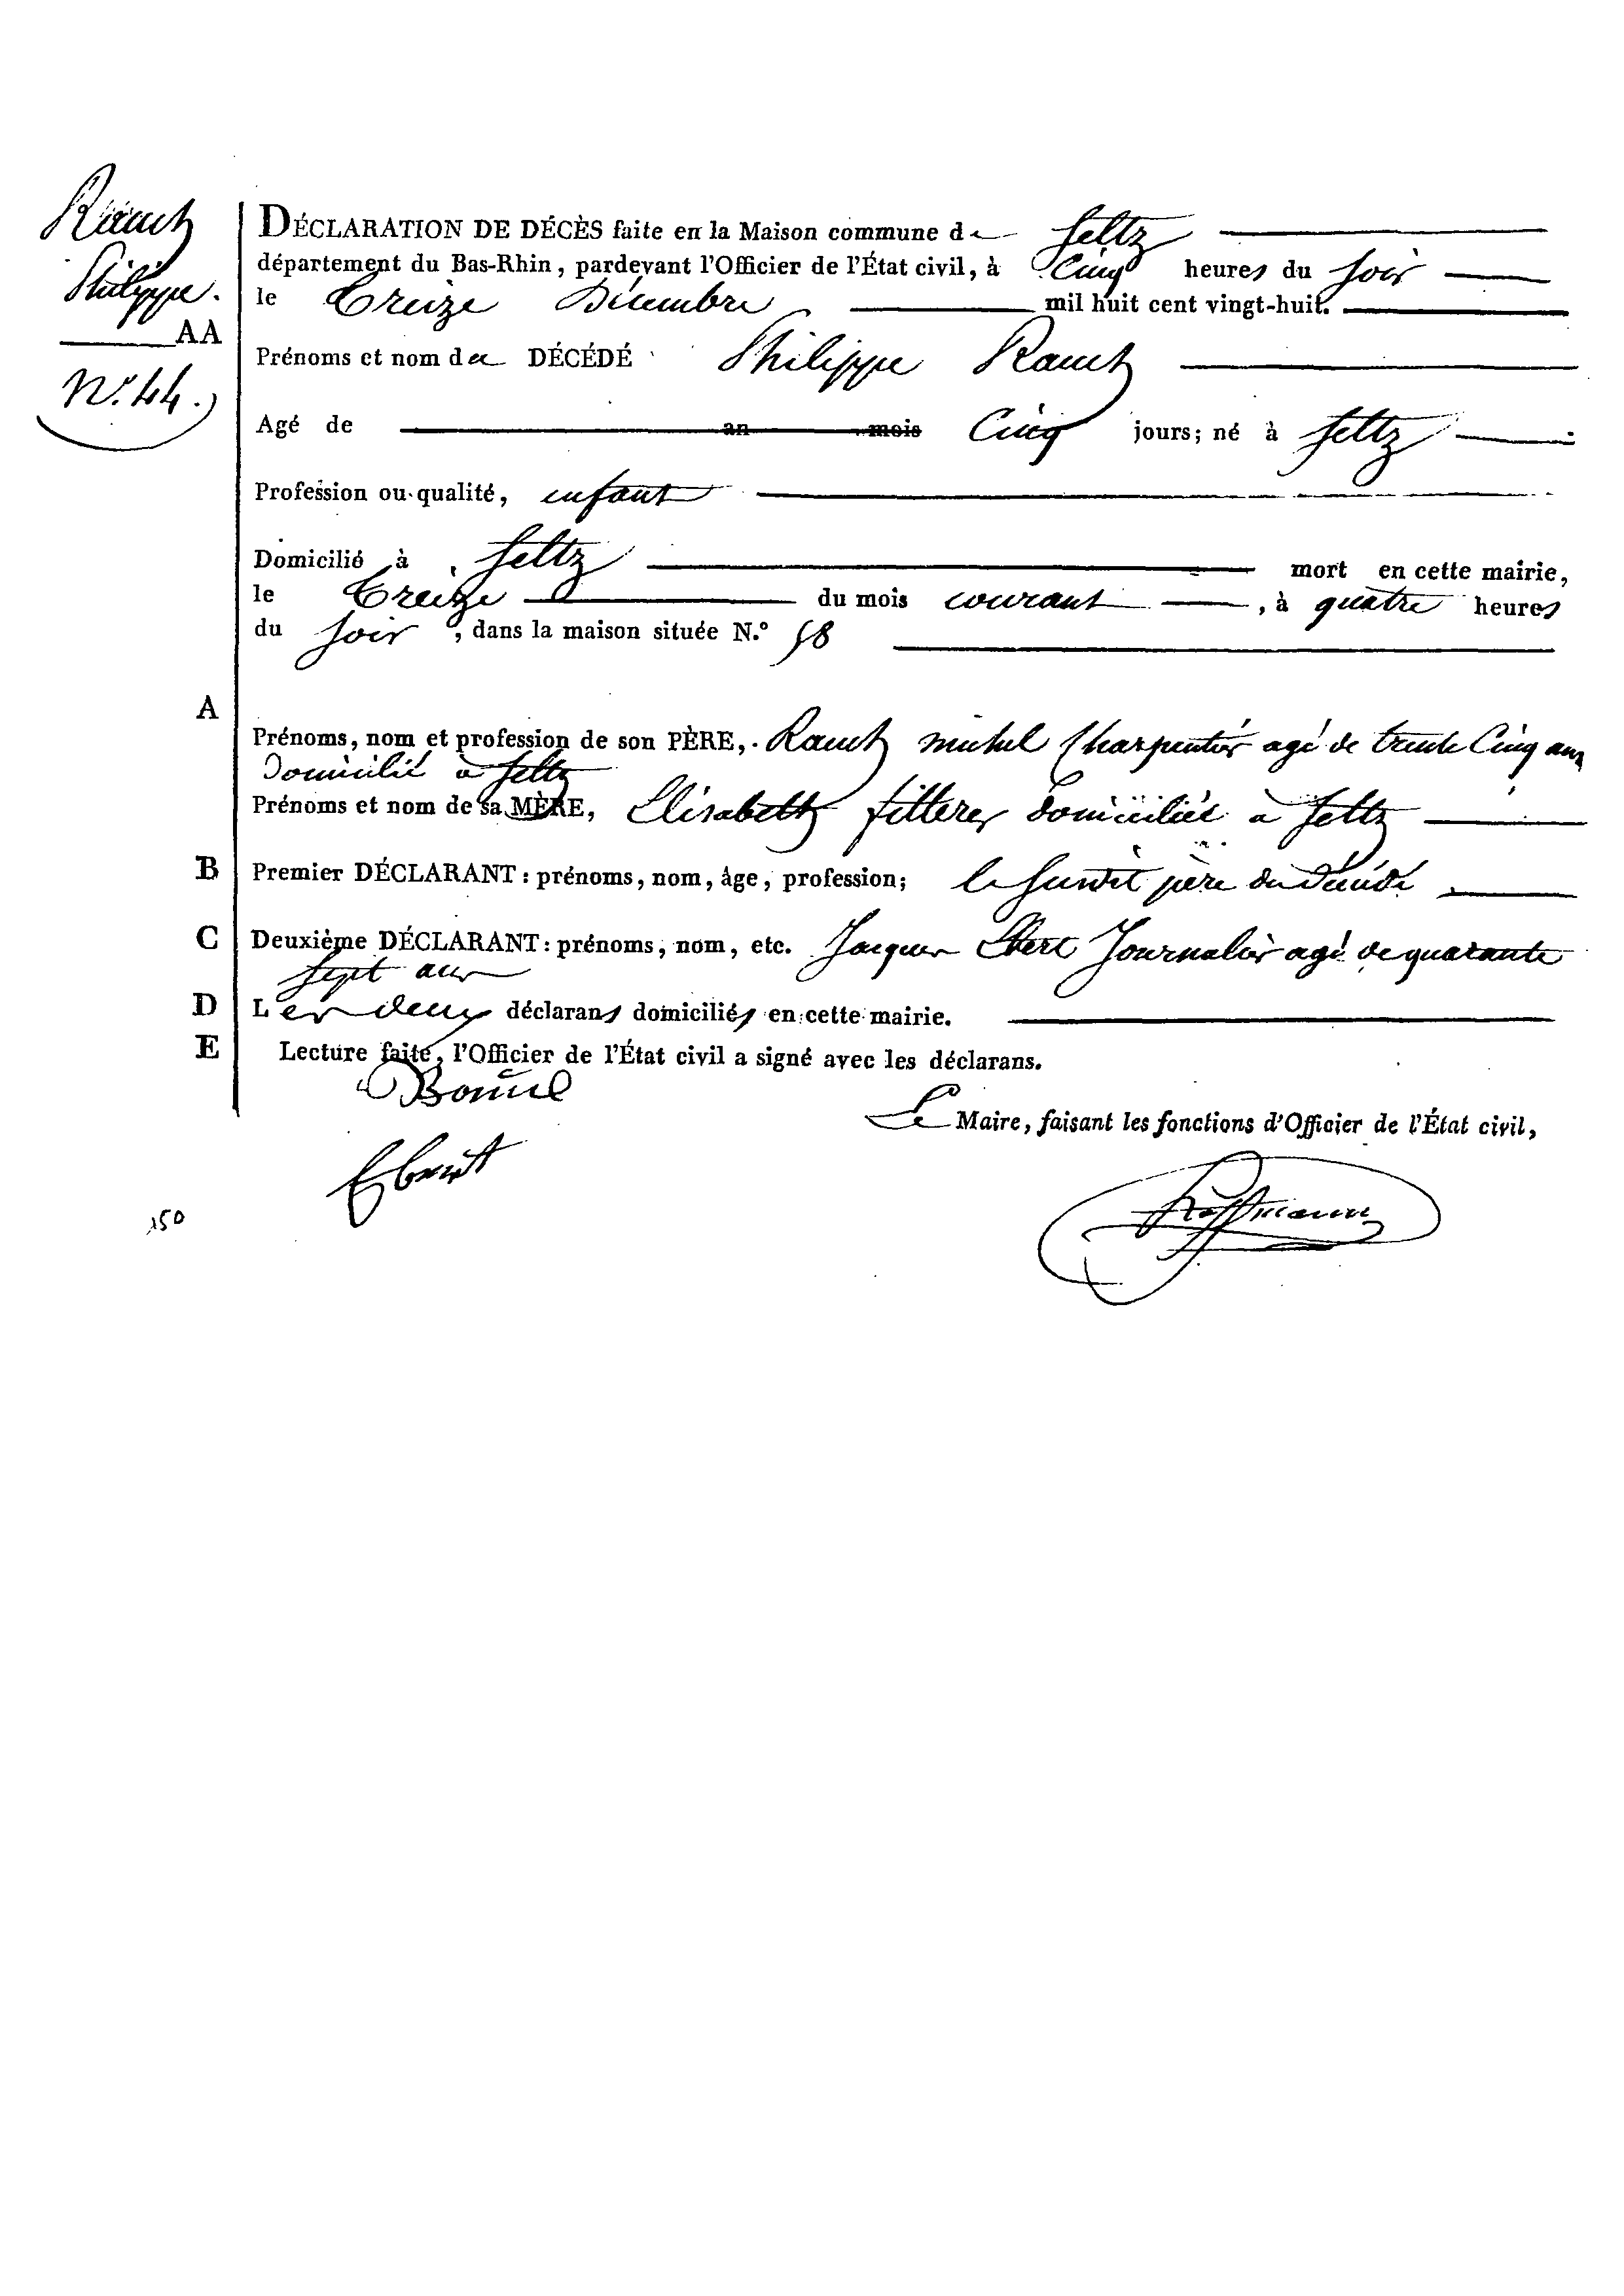 Rauch
Philippe.
AA
N.° 44.
DÉCLARATION DE DÉCÈS faite en la Maison commune de Seltz
département du Bas-Rhin, pardevant l'Officier de l'État civil, à Cinq heures du soir
le Treize Décembre mil huit cent vingt-huit.
Prénoms et nom du DÉCÉDÉ Philippe Rauch
Agé de an mois Cinq jours; né à Seltz
Profession ou qualité, enfant
Domicilié à Seltz mort en cette mairie,
le Treize du mois courant, à quatre heures
du soir, dans la maison située N.° 58
A
Prénoms, nom et profession de son PÈRE, Rauch Michel Charpentier agé de trente Cinq ans
Domicilié à Seltz
Prénoms et nom de sa MÈRE, Elisabeth fitterer domiciliée à Seltz
B Premier DÉCLARANT: prénoms, nom, âge, profession; le susdit père du décédé
C Deuxième DÉCLARANT: prénoms, nom, etc. Jacques Journalier agé de quarante
sept ans
D Les deux déclarans domiciliés en cette mairie.
E Lecture faite, l'Officier de l'État civil a signé avec les déclarans.
Le Maire, faisant les fonctions d'Officier de l'État civil,
Hoffmann
150